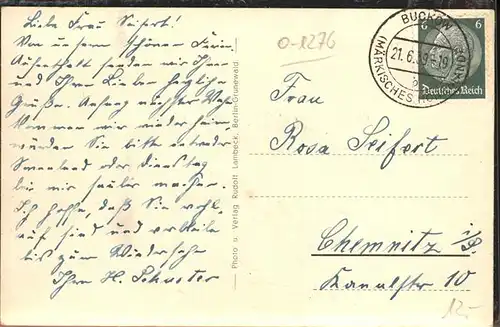 Liebe Frau Seifert!
Von unserm schönen Ferien-
Aufenthalt senden wir Ihnen
und Ihren Lieben herzliche
Grüße. Anfang nächster Woche
kommen wir wieder heim
würden Sie bitte entweder
Sonnabend oder Dienstag
bei mir sauber machen.
Ich hoffe, daß Sie wohl-
auf sind und verbleibe
bis zum Wiedersehn
Ihre H. Schuster
Photo u. Verlag Rudolf Lambeck, Berlin-Grunewald
0-1276
BUCKOW
21.6.39-19
(MÄRKISCHES
6 6
Deutsches Reich
Frau
Rosa Seifert
Chemnitz i/S.
Kanalstr 10
12,-